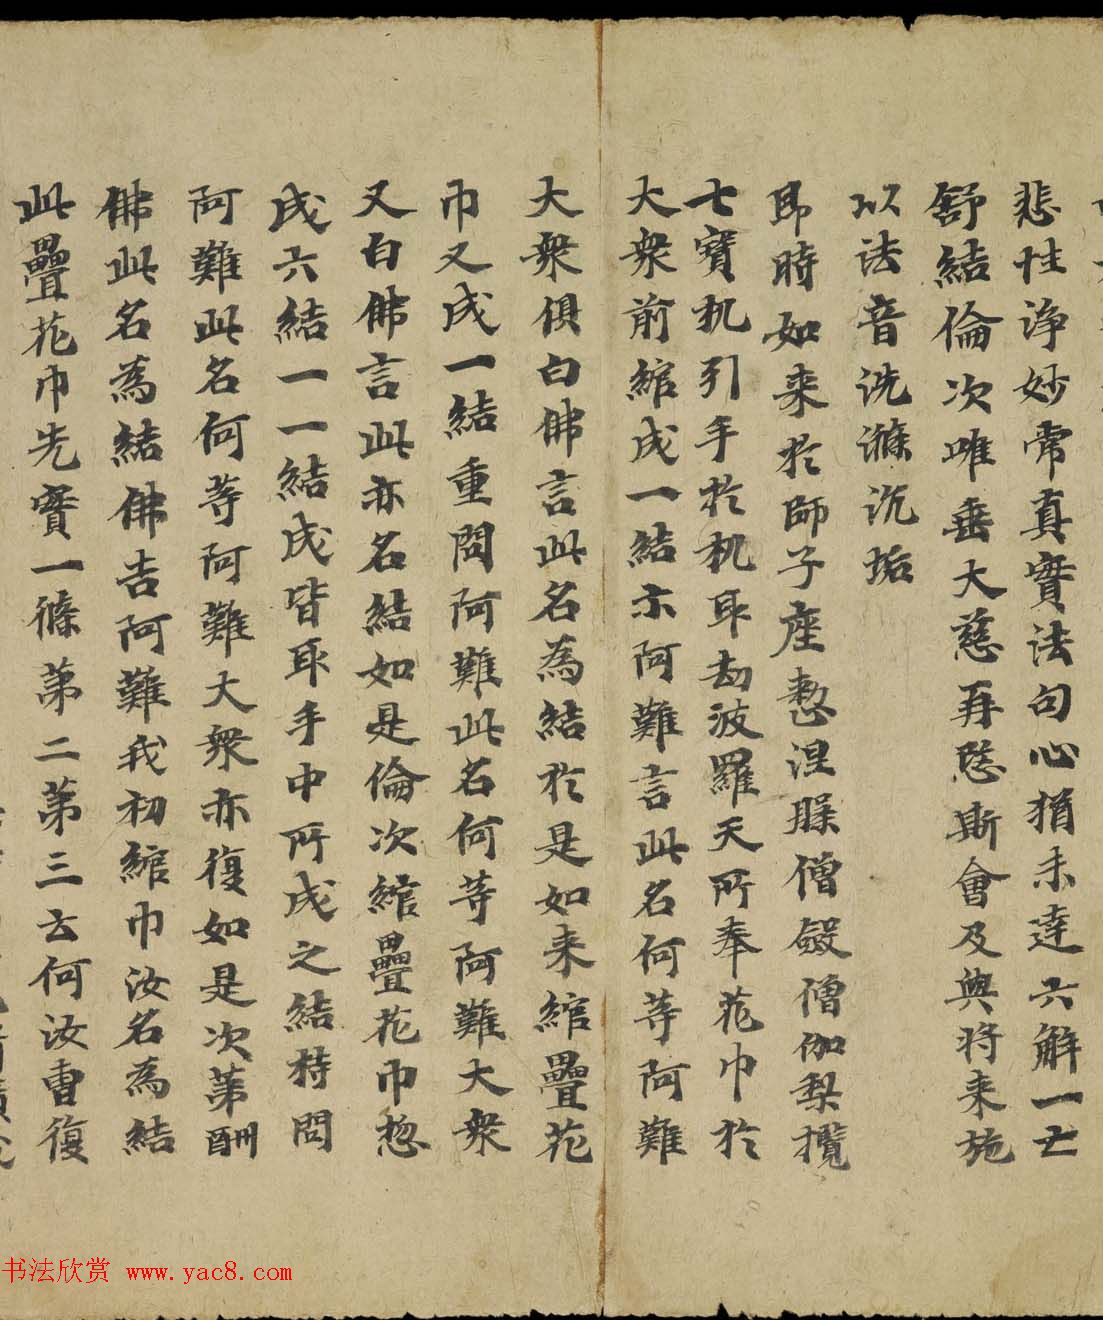 悲性淨妙常真實法句心猶未達六解一亡
舒結倫次唯垂大慈再愍斯會及與將来施
以法音洗滌沉垢
即時如来於師子座整涅脵僧斂僧伽梨攬
七寶机引手於机取劫波羅天所奉花巾於
大衆前綰成一結示阿難言此名何等阿難
大衆俱白佛言此名為結於是如来綰疊花
巾又成一結重問阿難此名何等阿難大衆
又白佛言此亦名結如是倫次綰疊花巾惣
成六結一一結成皆取手中所成之結持問
阿難此名何等阿難大衆亦復如是次第酬
佛此名為結佛告阿難我初綰巾汝名為結
此疊花巾先實一條第二第三云何汝曹復
书法欣赏 www.yac8.com